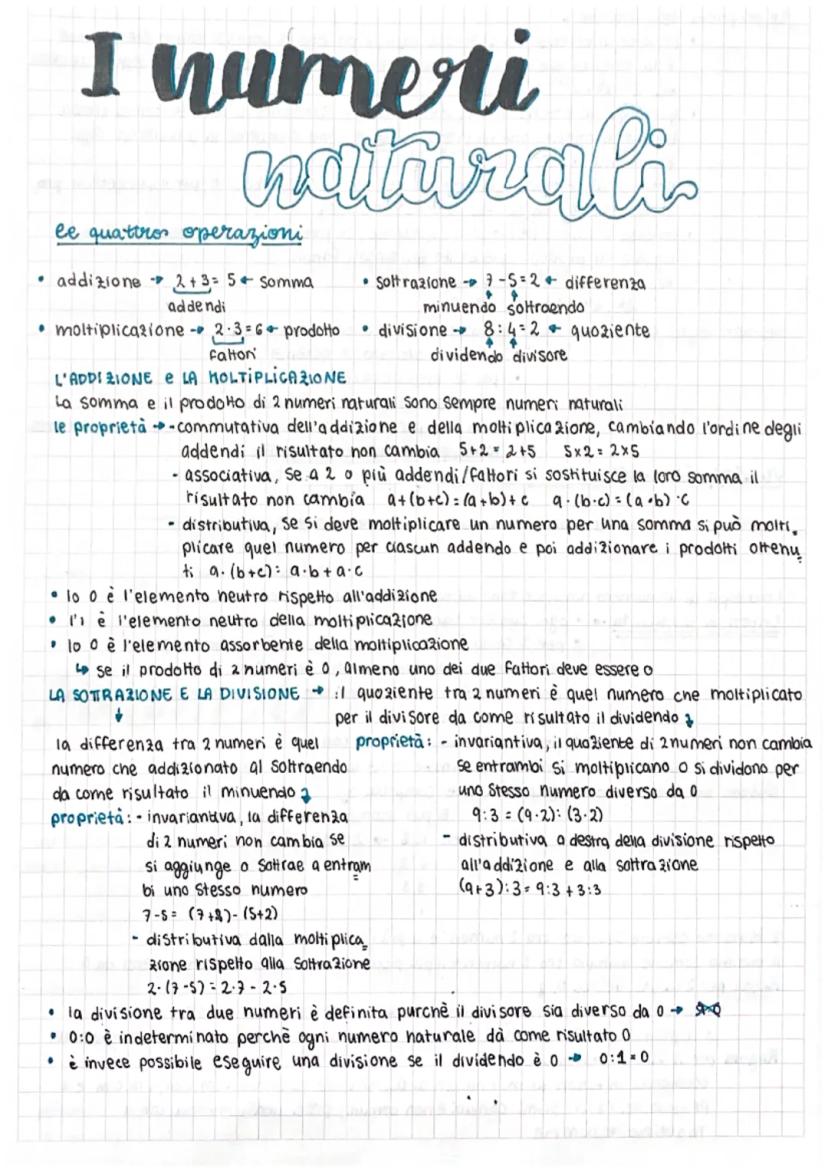 I numeri
naturali
le quattro operazioni
• addizione → 2+3=5 ← somma
addendi
• sottrazione → 7-5=2 ← differenza
minuendo sottraendo
• moltiplicazione → 2·3=6 ← prodotto
fattori
• divisione → 8:4=2 ← quoziente
dividendo divisore
L'ADDIZIONE e LA MOLTIPLICAZIONE
La somma e il prodotto di 2 numeri naturali sono sempre numeri naturali
le proprietà → - commutativa dell'addizione e della moltiplicazione, cambiando l'ordine degli
addendi il risultato non cambia 5+2=2+5 5x2=2x5
- associativa, se a 2 o più addendi/fattori si sostituisce la loro somma il
risultato non cambia a+(b+c)=(a+b)+c a·(b·c)=(a·b)·c
- distributiva, se si deve moltiplicare un numero per una somma si può molti_
plicare quel numero per ciascun addendo e poi addizionare i prodotti ottenu_
ti a·(b+c)=a·b+a·c
• lo 0 è l'elemento neutro rispetto all'addizione
• l'1 è l'elemento neutro della moltiplicazione
• lo 0 è l'elemento assorbente della moltiplicazione
↳ se il prodotto di 2 numeri è 0, almeno uno dei due fattori deve essere 0
LA SOTTRAZIONE E LA DIVISIONE → il quoziente tra 2 numeri è quel numero che moltiplicato
per il divisore da come risultato il dividendo
la differenza tra 2 numeri è quel
numero che addizionato al sottraendo
da come risultato il minuendo
proprietà: - invariantiva, la differenza
di 2 numeri non cambia se
si aggiunge o sottrae a entram_
bi uno stesso numero
7-5=(7+2)-(5+2)
- distributiva dalla moltiplica_
zione rispetto alla sottrazione
2·(7-5)=2·7-2·5
proprietà: - invariantiva, il quoziente di 2 numeri non cambia
se entrambi si moltiplicano o si dividono per
uno stesso numero diverso da 0
9:3=(9·2):(3·2)
- distributiva a destra della divisione rispetto
all'addizione e alla sottrazione
(9+3):3=9:3+3:3
• la divisione tra due numeri è definita purchè il divisore sia diverso da 0 →
• 0:0 è indeterminato perchè ogni numero naturale dà come risultato 0
• è invece possibile eseguire una divisione se il dividendo è 0 → 0:1=0